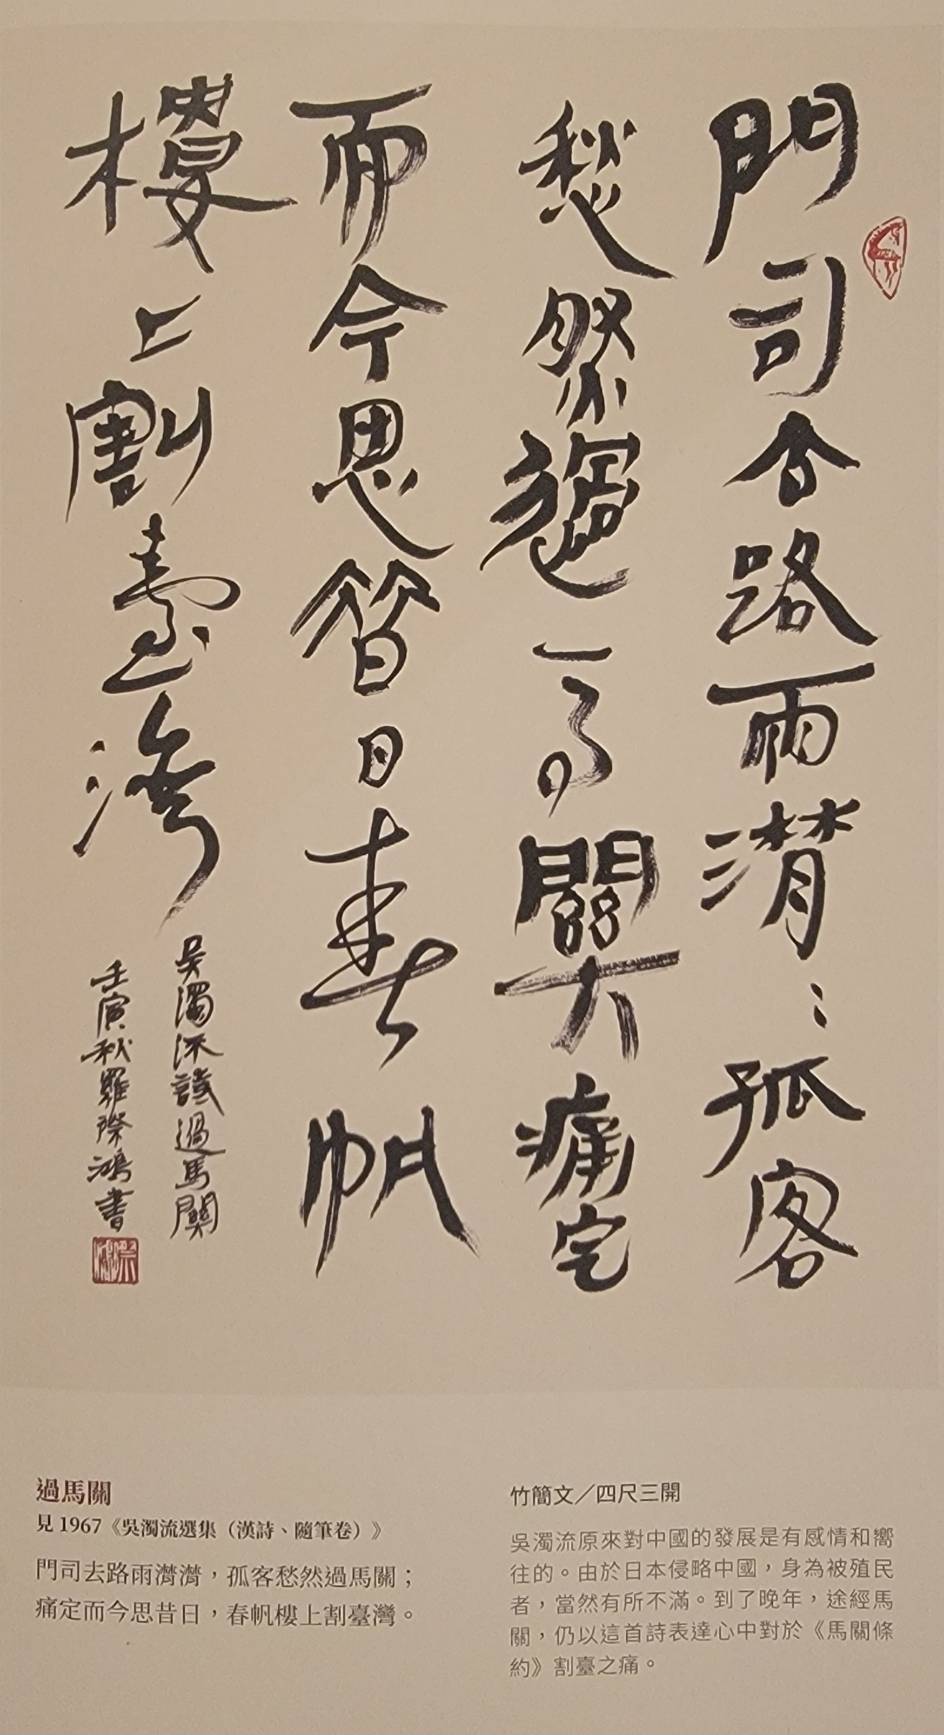 門司去路雨潸〻孤客
愁然過馬關痛定
而今思昔日春帆
樓上割臺灣
吳濁流詩過馬關
壬寅秋羅際鴻書
過馬關
見1967《吳濁流選集（漢詩、隨筆卷）》
門司去路雨潸潸，孤客愁然過馬關；
痛定而今思昔日，春帆樓上割臺灣。
竹簡文／四尺三開
吳濁流原來對中國的發展是有感情和嚮
往的。由於日本侵略中國，身為被殖民
者，當然有所不滿。到了晚年，途經馬
關，仍以這首詩表達心中對於《馬關條
約》割臺之痛。